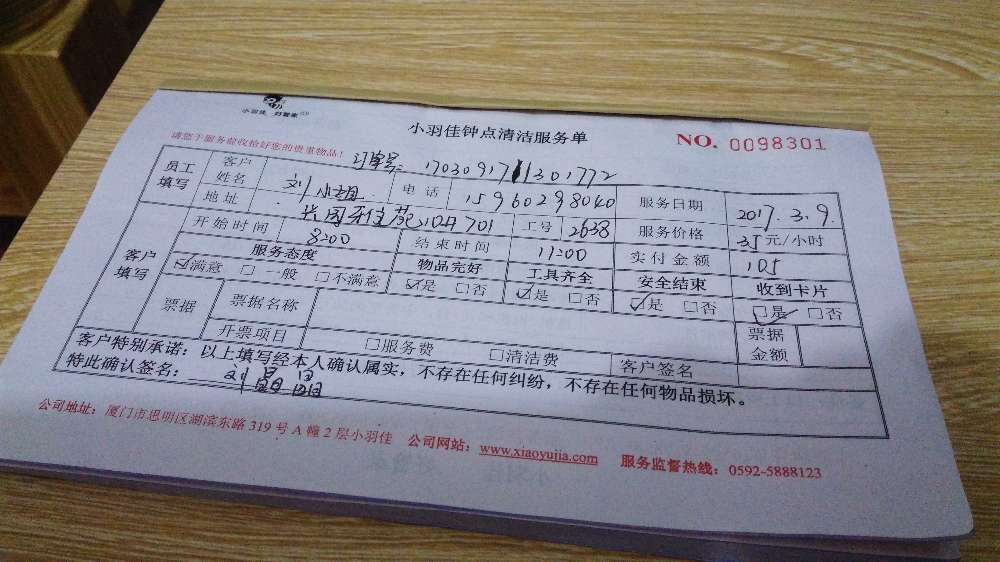 小羽佳 好管家
小羽佳钟点清洁服务单 NO. 0098301
请您于服务前收拾好您的贵重物品!
订单号: 170309171301772
员工填写 客户姓名 刘小姐 电话 15960298040 服务日期 2017.3.9.
地址 701 工号 2638 服务价格 35元/小时
客户填写 开始时间 8:00 结束时间 11:00 实付金额 105
服务态度 物品完好 工具齐全 安全结束 收到卡片
☑满意 □一般 □不满意 ☑是 □否 ☑是 □否 ☑是 □否 ☑是 □否
票据 票据名称 票据金额
开票项目 □服务费 □清洁费 客户签名
客户特别承诺:以上填写经本人确认属实,不存在任何纠纷,不存在任何物品损坏。
特此确认签名: 刘
公司地址:厦门市思明区湖滨东路319号A幢2层小羽佳 公司网站:www.xiaoyujia.com 服务监督热线:0592-5888123